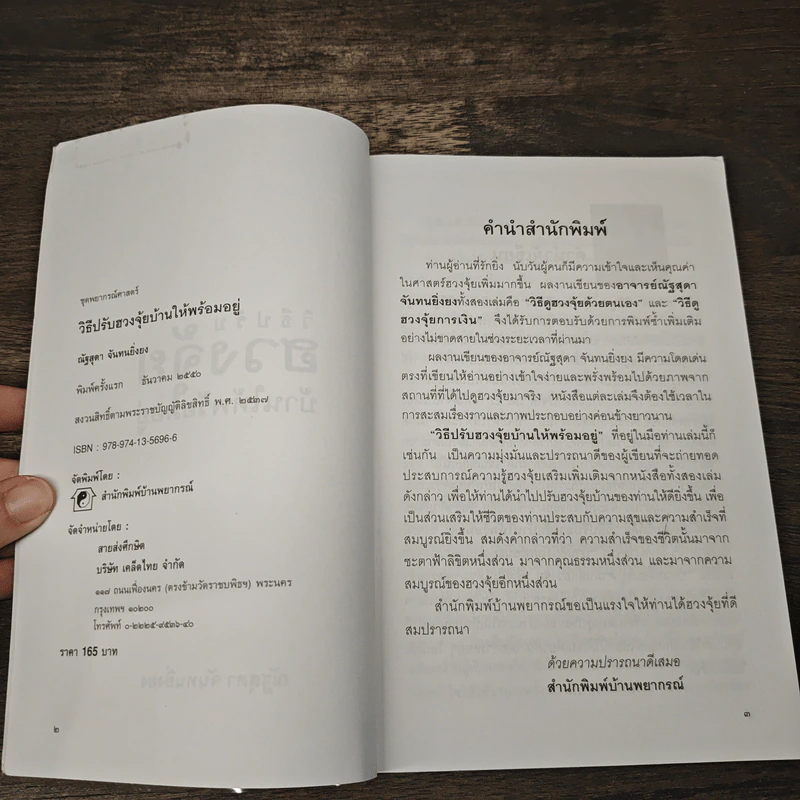 ชุดพยากรณ์ศาสตร์
วิธีปรับฮวงจุ้ยบ้านให้พร้อมอยู่
ณัฐสุดา จันทนยิ่งยง
พิมพ์ครั้งแรก ธันวาคม ๒๕๕๐
สงวนสิทธิ์ตามพระราชบัญญัติลิขสิทธิ์ พ.ศ. ๒๕๓๗
ISBN : 978-974-13-5696-6
จัดพิมพ์โดย :
สำนักพิมพ์บ้านพยากรณ์
จัดจำหน่ายโดย :
สายส่งศึกษิต
บริษัท เคล็ดไทย จำกัด
๑๑๗ ถนนเฟื่องนคร (ตรงข้ามวัดราชบพิธฯ) พระนคร
กรุงเทพฯ ๑๐๒๐๐
โทรศัพท์ ๐-๒๒๒๕-๙๕๓๖-๔๐
ราคา 165 บาท
๒
คำนำสำนักพิมพ์
ท่านผู้อ่านที่รักยิ่ง นับวันผู้คนก็มีความเข้าใจและเห็นคุณค่า
ในศาสตร์ฮวงจุ้ยเพิ่มมากขึ้น ผลงานเขียนของอาจารย์ณัฐสุดา
จันทนยิ่งยงทั้งสองเล่มคือ “วิธีดูฮวงจุ้ยด้วยตนเอง” และ “วิธีดู
ฮวงจุ้ยการเงิน” จึงได้รับการตอบรับด้วยการพิมพ์ซ้ำเพิ่มเติม
อย่างไม่ขาดสายในช่วงระยะเวลาที่ผ่านมา
ผลงานเขียนของอาจารย์ณัฐสุดา จันทนยิ่งยง มีความโดดเด่น
ตรงที่เขียนให้อ่านอย่างเข้าใจง่ายและพรั่งพร้อมไปด้วยภาพจาก
สถานที่ที่ได้ไปดูฮวงจุ้ยมาจริง หนังสือแต่ละเล่มจึงต้องใช้เวลาใน
การสะสมเรื่องราวและภาพประกอบอย่างค่อนข้างยาวนาน
“วิธีปรับฮวงจุ้ยบ้านให้พร้อมอยู่” ที่อยู่ในมือท่านเล่มนี้ก็
เช่นกัน เป็นความมุ่งมั่นและปรารถนาดีของผู้เขียนที่จะถ่ายทอด
ประสบการณ์ความรู้ฮวงจุ้ยเสริมเพิ่มเติมจากหนังสือทั้งสองเล่ม
ดังกล่าว เพื่อให้ท่านได้นำไปปรับฮวงจุ้ยบ้านของท่านให้ดียิ่งขึ้น เพื่อ
เป็นส่วนเสริมให้ชีวิตของท่านประสบกับความสุขและความสำเร็จที่
สมบูรณ์ยิ่งขึ้น สมดังคำกล่าวที่ว่า ความสำเร็จของชีวิตนั้นมาจาก
ชะตาฟ้าลิขิตหนึ่งส่วน มาจากคุณธรรมหนึ่งส่วน และมาจากความ
สมบูรณ์ของฮวงจุ้ยอีกหนึ่งส่วน
สำนักพิมพ์บ้านพยากรณ์ขอเป็นแรงใจให้ท่านได้ฮวงจุ้ยที่ดี
สมปรารถนา
ด้วยความปรารถนาดีเสมอ
สำนักพิมพ์บ้านพยากรณ์
๓